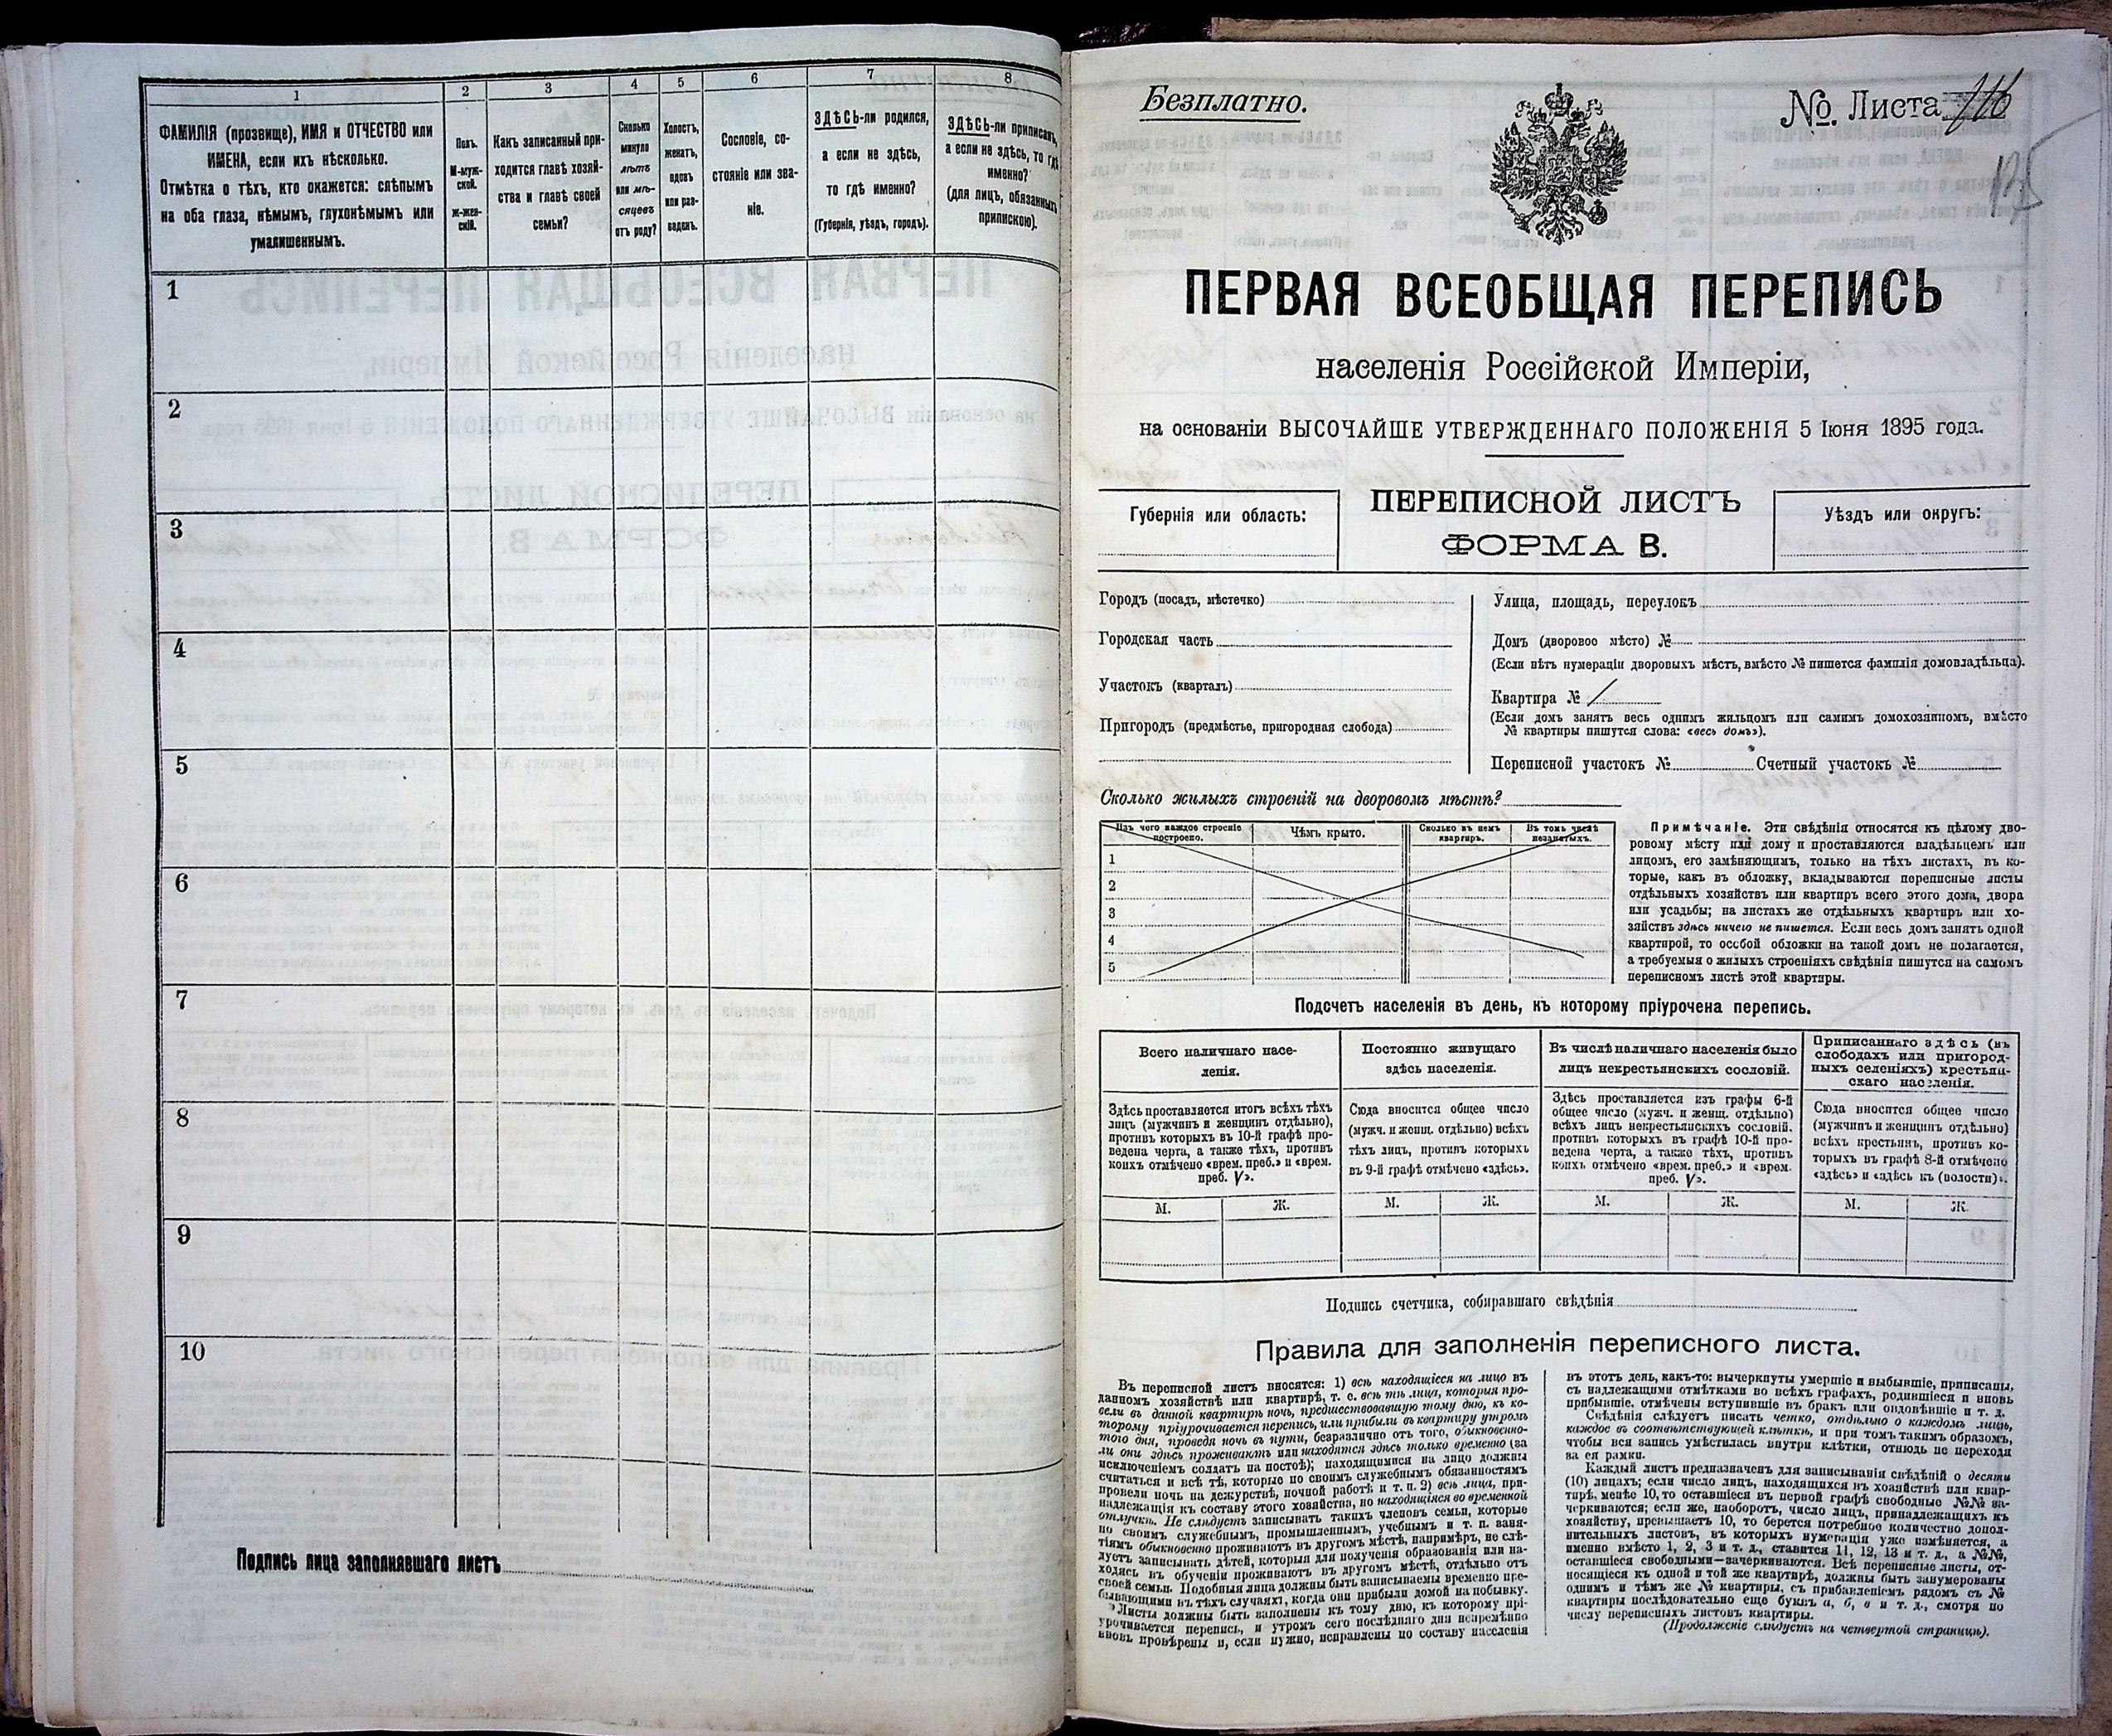 1 2 3 4 5 6 7 8
ФАМИЛІЯ (прозвище), ИМЯ и ОТЧЕСТВО или
ИМЕНА, если ихъ нѣсколько.
Отмѣтка о тѣхъ, кто окажется: слѣпымъ
на оба глаза, нѣмымъ, глухонѣмымъ или
умалишеннымъ.
Полъ.
М-муж-
ской.
ж-жен-
скій.
Какъ записанный при-
ходится главѣ хозяй-
ства и главѣ своей
семьи?
Сколько
минуло
лѣтъ
или мѣ-
сяцевъ
отъ роду?
Холостъ,
женатъ,
вдовъ
или раз-
веденъ.
Сословіе, со-
стояніе или зва-
ніе.
ЗДѢСЬ-ли родился,
а если не здѣсь,
то гдѣ именно?
(Губернія, уѣздъ, городъ).
ЗДѢСЬ-ли приписанъ,
а если не здѣсь, то гдѣ
именно?
(для лицъ, обязанныхъ
припискою).
1
2
3
4
5
6
7
8
9
10
Подпись лица заполнявшаго листъ
Безплатно.
№. Листа 116
ПЕРВАЯ ВСЕОБЩАЯ ПЕРЕПИСЬ
населенія Россійской Имперіи,
на основаніи ВЫСОЧАЙШЕ УТВЕРЖДЕННАГО ПОЛОЖЕНІЯ 5 Іюня 1895 года.
Губернія или область:
ПЕРЕПИСНОЙ ЛИСТЪ
ФОРМА В.
Уѣздъ или округъ:
Городъ (посадъ, мѣстечко)
Городская часть
Участокъ (кварталъ)
Пригородъ (предмѣстье, пригородная слобода)
Улица, площадь, переулокъ
Домъ (дворовое мѣсто) №
(Если нѣтъ нумераціи дворовыхъ мѣстъ, вмѣсто № пишется фамилія домовладѣльца).
Квартира №
(Если домъ занятъ весь однимъ жильцомъ или самимъ домохозяиномъ, вмѣсто
№ квартиры пишутся слова: «весь домъ»).
Переписной участокъ № Счетный участокъ №
Сколько жилыхъ строеній на дворовомъ мѣстѣ?
Изъ чего каждое строеніе
построено.
Чѣмъ крыто.
Сколько въ немъ
квартиръ.
Въ томъ числѣ
незанятыхъ.
1
2
3
4
5
Примѣчаніе. Эти свѣдѣнія относятся къ цѣлому дво-
ровому мѣсту или дому и проставляются владѣльцемъ или
лицомъ, его замѣняющимъ, только на тѣхъ листахъ, въ ко-
торые, какъ въ обложку, вкладываются переписные листы
отдѣльныхъ хозяйствъ или квартиръ всего этого дома, двора
или усадьбы; на листахъ же отдѣльныхъ квартиръ или хо-
зяйствъ здѣсь ничего не пишется. Если весь домъ занятъ одной
квартирой, то особой обложки на такой домъ не полагается,
а требуемыя о жилыхъ строеніяхъ свѣдѣнія пишутся на самомъ
переписномъ листѣ этой квартиры.
Подсчетъ населенія въ день, къ которому пріурочена перепись.
Всего наличнаго насе-
ленія.
Здѣсь проставляется итогъ всѣхъ тѣхъ
лицъ (мужчинъ и женщинъ отдѣльно),
противъ которыхъ въ 10-й графѣ про-
ведена черта, а также тѣхъ, противъ
коихъ отмѣчено «врем. преб.» и «врем.
преб. V».
Постоянно живущаго
здѣсь населенія.
Сюда вносится общее число
(мужч. и женщ. отдѣльно) всѣхъ
тѣхъ лицъ, противъ которыхъ
въ 9-й графѣ отмѣчено «здѣсь».
Въ числѣ наличнаго населенія было
лицъ некрестьянскихъ сословій.
Здѣсь проставляется изъ графы 6-й
общее число (мужч. и женщ. отдѣльно)
всѣхъ лицъ некрестьянскихъ сословій.
противъ которыхъ въ графѣ 10-й про-
ведена черта, а также тѣхъ, противъ
коихъ отмѣчено «врем. преб.» и «врем.
преб. V».
Приписаннаго здѣсь (въ
слободахъ или пригород-
ныхъ селеніяхъ) крестьян-
скаго населенія.
Сюда вносится общее число
(мужчинъ и женщинъ отдѣльно)
всѣхъ крестьянъ, противъ ко-
торыхъ въ графѣ 8-й отмѣчено
«здѣсь» и «здѣсь къ (волости)».
М. Ж. М. Ж. М. Ж. М. Ж.
Подпись счетчика, собиравшаго свѣдѣнія
Правила для заполненія переписного листа.
Въ переписной листъ вносятся: 1) всѣ находящіеся на лицо въ
данномъ хозяйствѣ или квартирѣ, т. е. всѣ тѣ лица, которыя про-
вели въ данной квартирѣ ночь, предшествовавшую тому дню, къ ко-
торому пріурочивается перепись, или прибыли въ квартиру утромъ
того дня, проведя ночь въ пути, безразлично отъ того, обыкновенно-
ли они здѣсь проживаютъ или находятся здѣсь только временно (за
исключеніемъ солдатъ на постоѣ); находящимися на лицо должны
считаться и всѣ тѣ, которые по своимъ служебнымъ обязанностямъ
провели ночь на дежурствѣ, ночной работѣ и т. п. 2) всѣ лица, при-
надлежащія къ составу этого хозяйства, но находящіяся во временной
отлучкѣ. Не слѣдуетъ записывать такихъ членовъ семьи, которые
по своимъ служебнымъ, промышленнымъ, учебнымъ и т. п. заня-
тіямъ обыкновенно проживаютъ въ другомъ мѣстѣ, напримѣръ, не слѣ-
дуетъ записывать дѣтей, которыя для полученія образованія или на-
ходясь въ обученіи проживаютъ въ другомъ мѣстѣ, отдѣльно отъ
своей семьи. Подобныя лица должны быть записываемы временно пре-
бывающими въ тѣхъ случаяхъ, когда они прибыли домой на побывку.
Листы должны быть заполнены къ тому дню, къ которому прі-
урочивается перепись, и утромъ сего послѣдняго дня непремѣнно
вновь провѣрены и, если нужно, исправлены по составу населенія
въ этотъ день, какъ-то: вычеркнуты умершіе и выбывшіе, приписаны,
съ надлежащими отмѣтками во всѣхъ графахъ, родившіеся и вновь
прибывшіе, отмѣчены вступившіе въ бракъ или овдовѣвшіе и т. д.
Свѣдѣнія слѣдуетъ писать четко, отдѣльно о каждомъ лицѣ,
каждое въ соотвѣтствующей клѣткѣ, и при томъ такимъ образомъ,
чтобы вся запись умѣстилась внутри клѣтки, отнюдь не переходя
за ея рамки.
Каждый листъ предназначенъ для записыванія свѣдѣній о десяти
(10) лицахъ; если число лицъ, находящихся въ хозяйствѣ или квар-
тирѣ, менѣе 10, то оставшіеся въ первой графѣ свободные №№ за-
черкиваются; если же, наоборотъ, число лицъ, принадлежащихъ къ
хозяйству, превышаетъ 10, то берется потребное количество допол-
нительныхъ листовъ, въ которыхъ нумерація уже измѣняется, а
именно вмѣсто 1, 2, 3 и т. д., ставится 11, 12, 13 и т. д., а №№,
оставшіеся свободными—зачеркиваются. Всѣ переписные листы, от-
носящіеся къ одной и той же квартирѣ, должны быть занумерованы
однимъ и тѣмъ же № квартиры, съ прибавленіемъ рядомъ съ №
квартиры послѣдовательно еще буквъ а, б, в и т. д., смотря по
числу переписныхъ листовъ квартиры.
(Продолженіе слѣдуетъ на четвертой страницѣ).